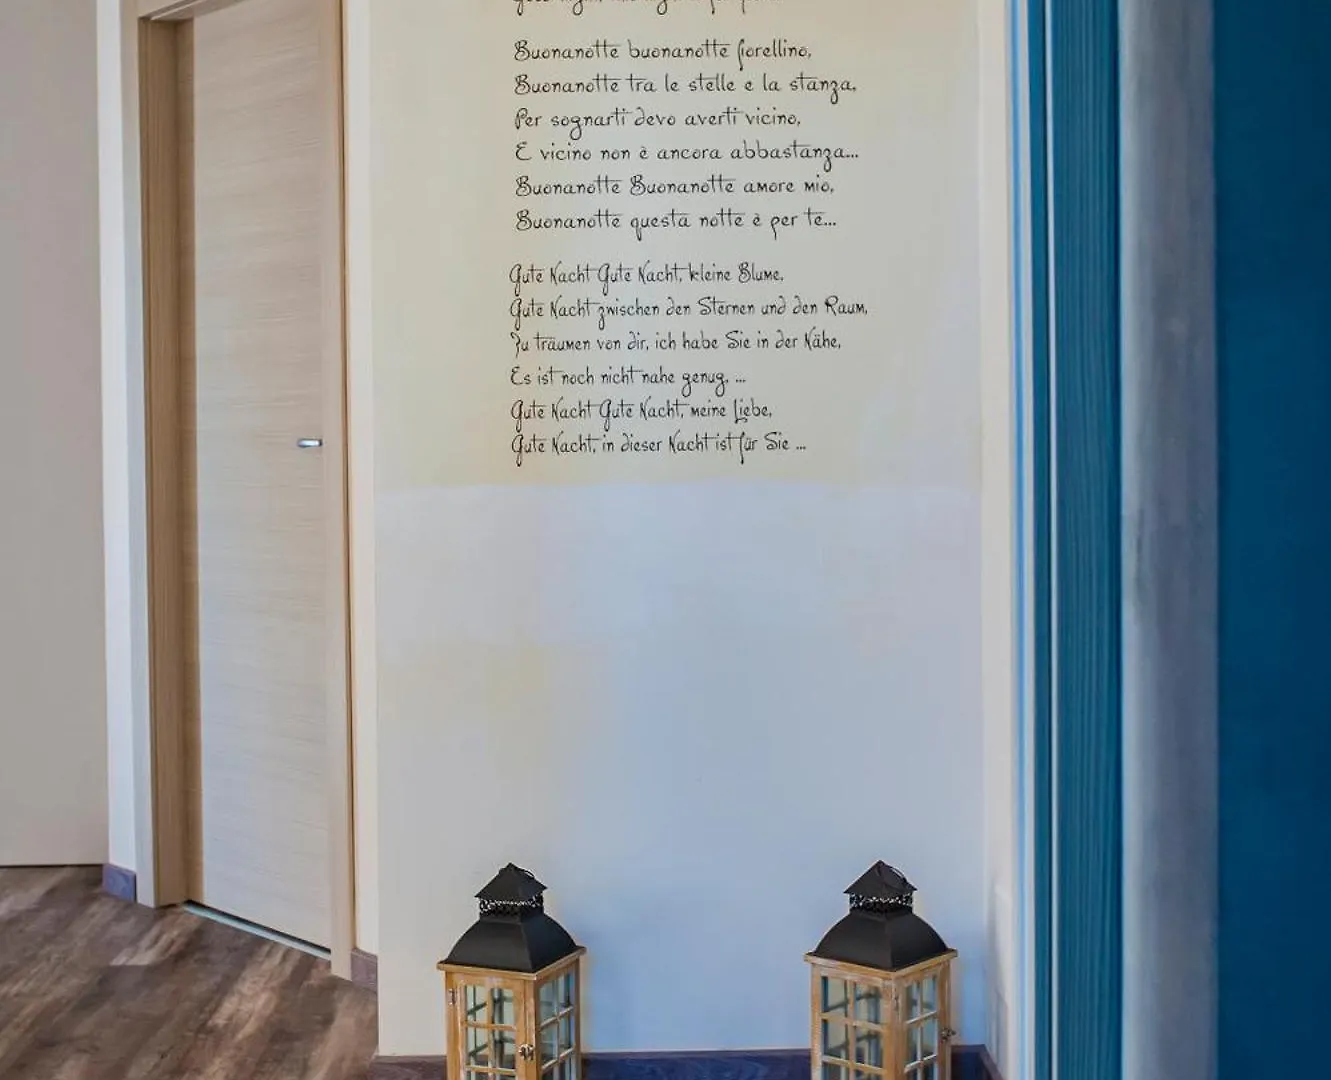 Buonanotte buonanotte fiorellino,
Buonanotte tra le stelle e la stanza,
Per sognarti devo averti vicino,
E vicino non è ancora abbastanza...
Buonanotte Buonanotte amore mio,
Buonanotte questa notte è per te...
Gute Nacht Gute Nacht, kleine Blume,
Gute Nacht zwischen den Sternen und den Raum,
Zu träumen von dir, ich habe Sie in der Nähe,
Es ist noch nicht nahe genug. ...
Gute Nacht Gute Nacht, meine Liebe,
Gute Nacht, in dieser Nacht ist für Sie ...